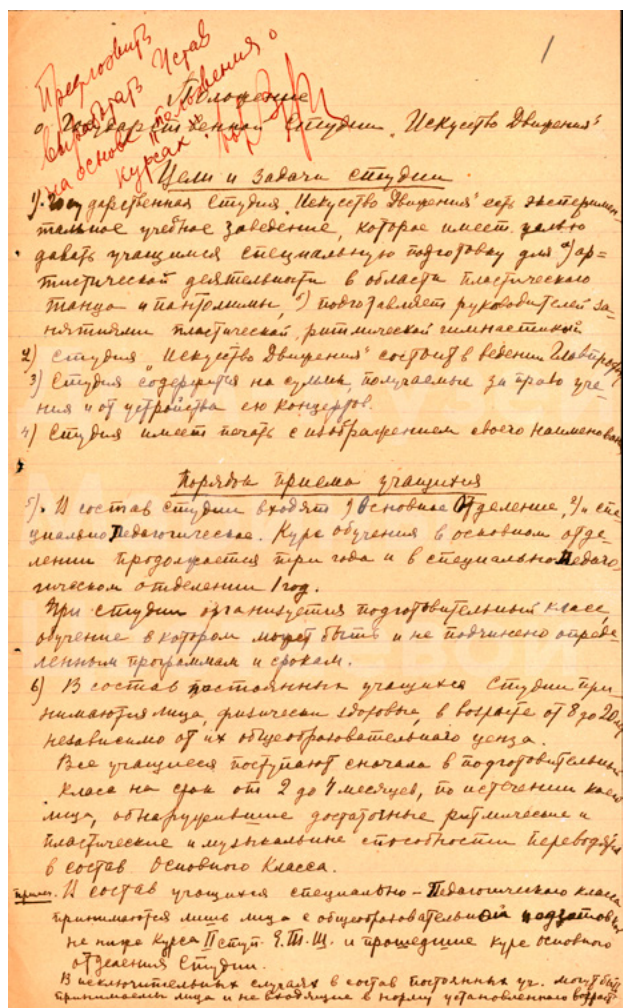 1
Предложить
выработать Устав
на основе "положения о
курсах"
Положение
о Государственной Студии "Искусство Движения"
Цели и задачи студии
1). Государственная Студия "Искусство Движения" есть эксперимен-
тальное учебное заведение, которое имеет целью
давать учащимся специальную подготовку для а) ар=
тистической деятельности в области пластического
танца и пантомимы, б) подготавляет руководителей за-
нятиями пластической, ритмической гимнастикой.
2) Студия "Искусство Движения" состоит в ведении Главпрофобр
3) Студия содержится на суммы, получаемые за право уче-
ния и от устройства ею концертов.
4) Студия имеет печать с изображением своего наименован.
Порядок приема учащихся
5). В состав студии входят 1) Основное Отделение, 2) и спе-
циально Педагогическое. Курс обучения в основном отде-
лении продолжается три года и в специально Педаго-
гическом отделении 1 год.
При студии организуется подготовительный класс,
обучение в котором может быть и не подчинено опреде-
ленным программам и срокам.
6) В состав постоянных учащихся Студии при-
нимаются лица, физически здоровые, в возрасте от 8 до 20
независимо от их общеобразовательного ценза.
Все учащиеся поступают сначала в подготовительный
класс на срок от 2 до 4 месяцев, по истечении коего
лица, обнаружившие достаточные ритмические и
пластические и музыкальные способности переводятся
в состав Основного Класса.
прим. В состав учащихся специально-Педагогического класса
принимаются лишь лица с общеобразовательной подготовкой
не ниже курса II ступ. Е.Т.Ш. и прошедшие курс основного
отделения Студии.
В исключительных случаях в состав постоянных уч. могут быть
принимаемы лица и не входящие в норму установленного возраст